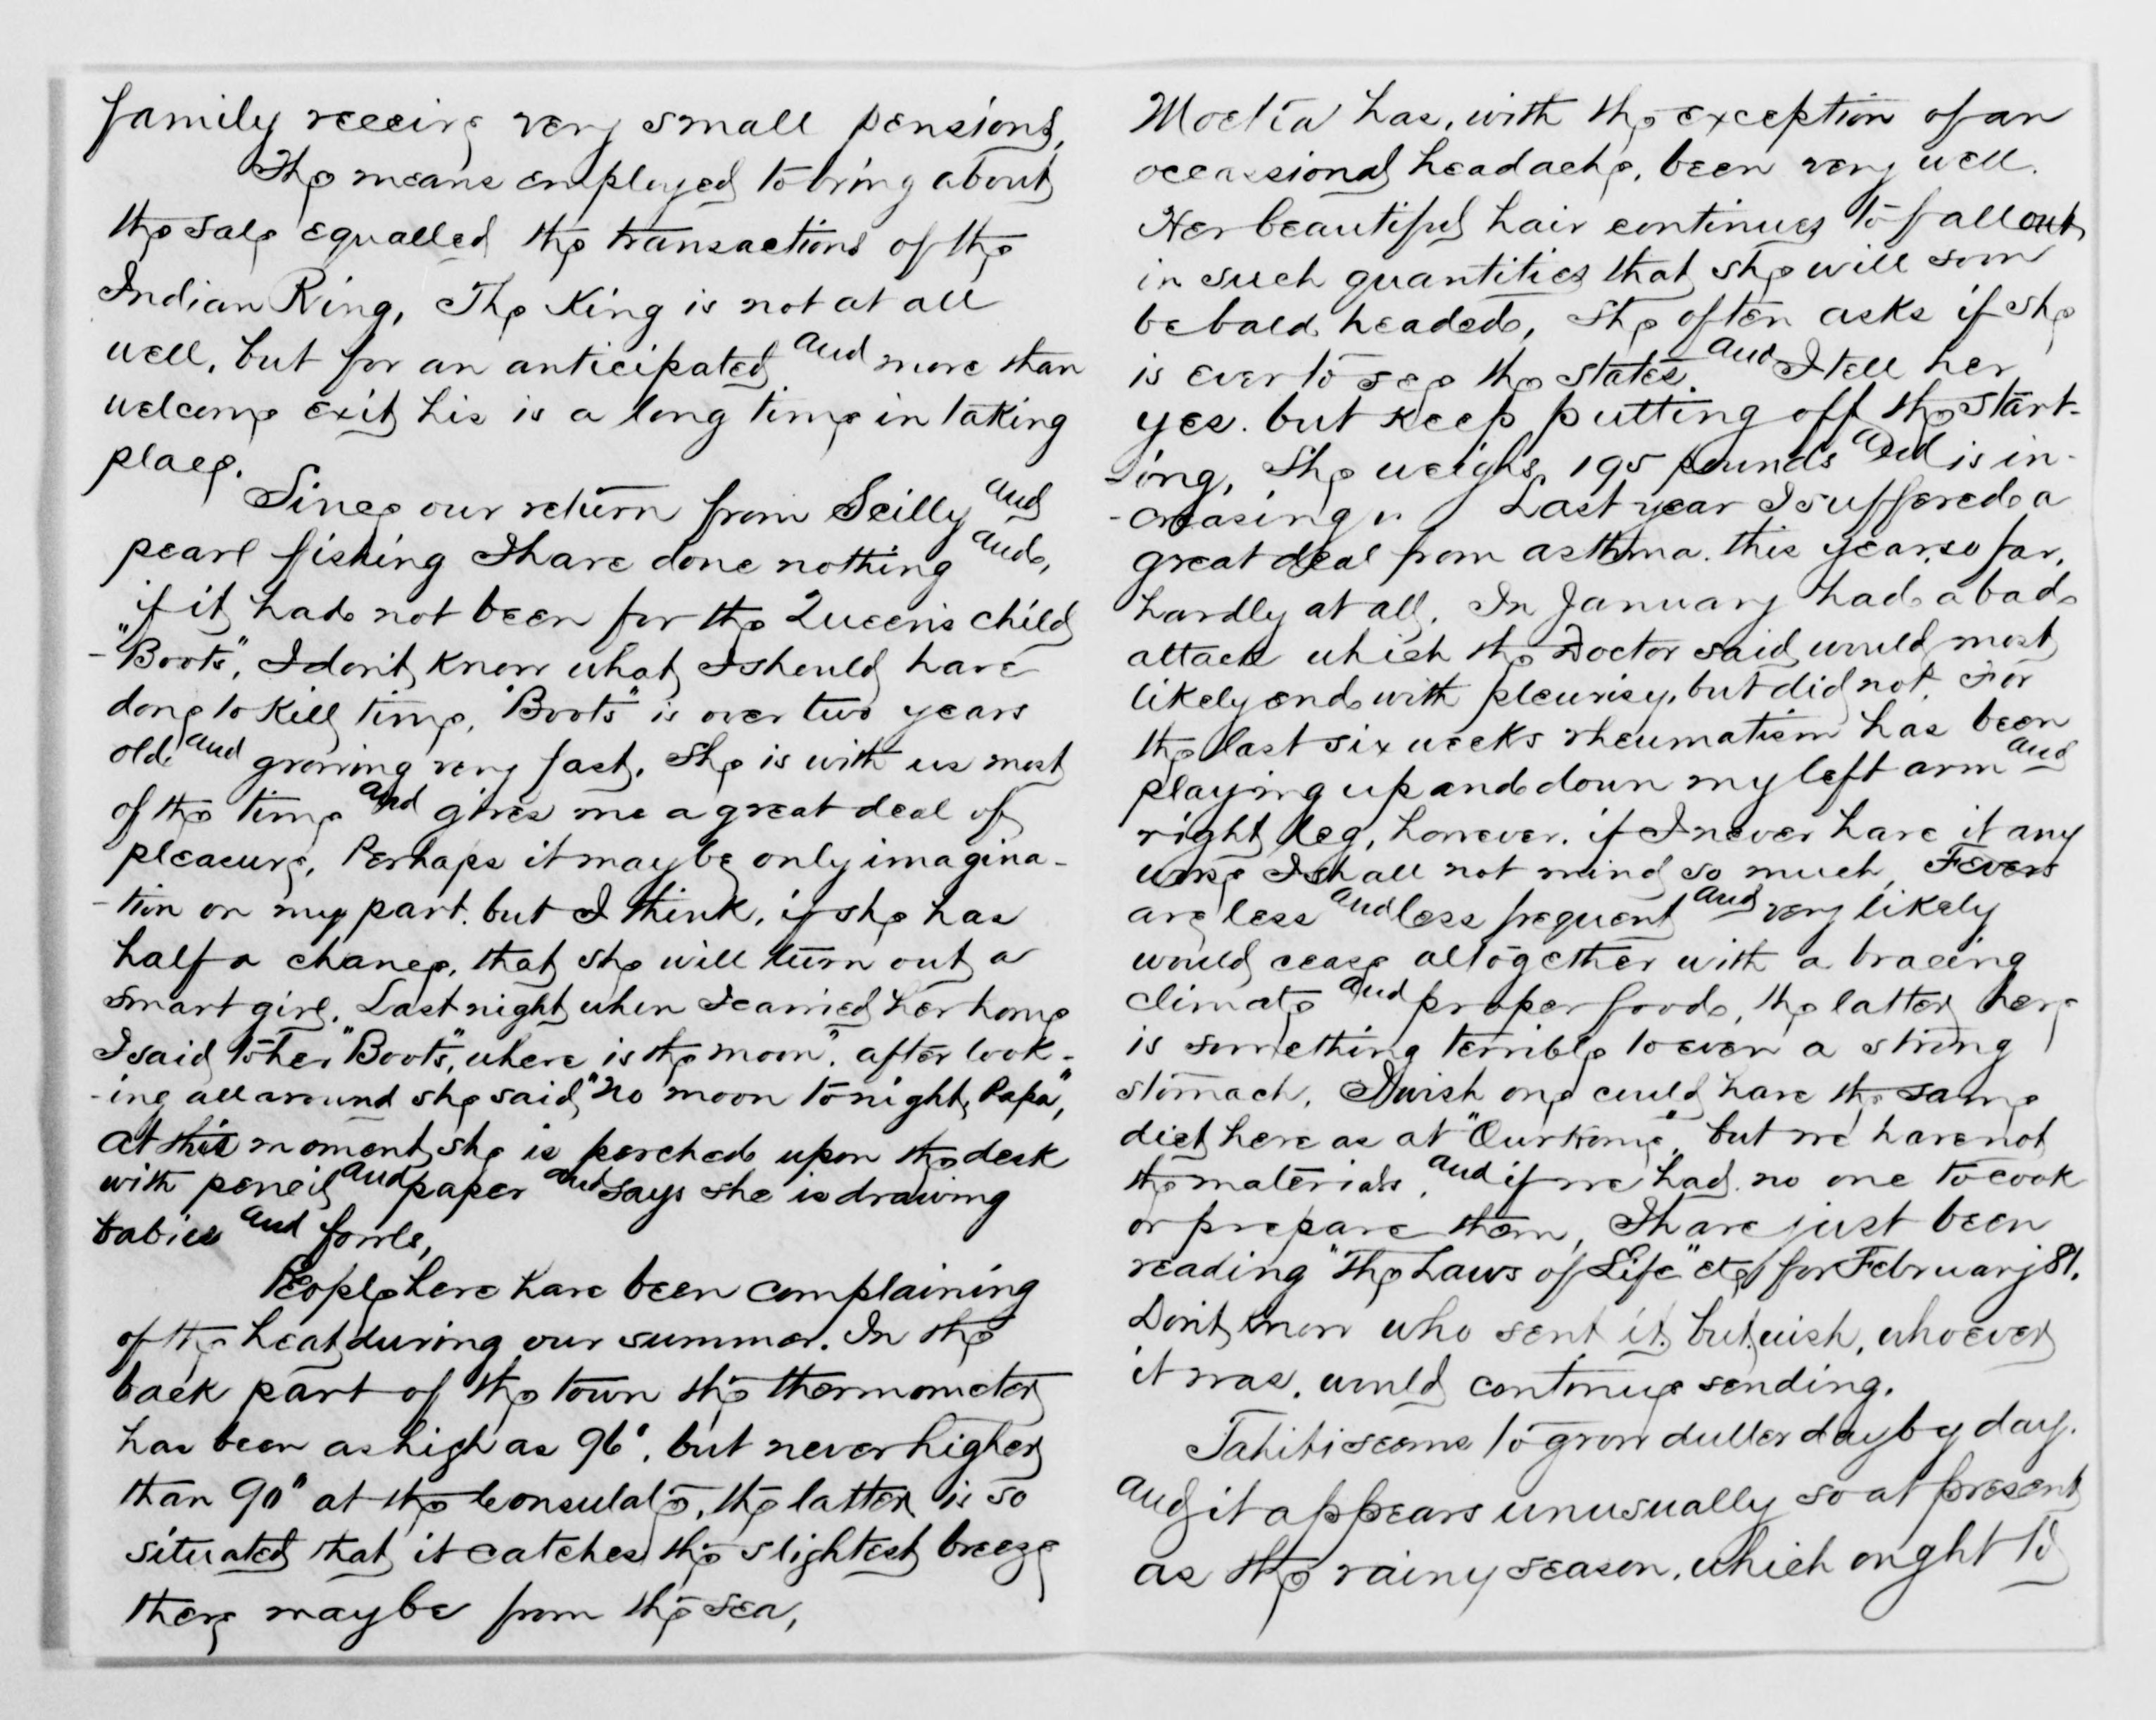 family receive very small pensions.
The means employed to bring about
the sale equalled the transactions of the
Indian Ring, The King is not at all
well, but for an anticipated and more than
welcome exit his is a long time in taking
place.
Since our return from Scilly and
pearl fishing I have done nothing and,
if it had not been for the Queen's child
-"Boots", I don't know what I should have
done to kill time. "Boots" is over two years
old and growing very fast. She is with us most
of the time and gives me a great deal of
pleasure, Perhaps it may be only imagina-
-tion on my part, but I think, if she has
half a chance, that she will turn out a
smart girl. Last night when I carried her home
I said to her "Boots", where is the moon", after look-
-ing all around she said, "no moon to night, Papa",
at this moment she is perched upon the desk
with pencil and paper and says she is drawing
babies and fowls,
People here have been complaining
of the heat during our summer. In the
back part of the town the thermometer
has been as high as 96°, but never higher
than 90° at the Consulate, the latter is so
situated that it catches the slightest breeze
there may be from the sea,
Moetia has, with the exception of an
occassional headache, been very well.
Her beautiful hair continues to fall out
in such quantities that she will soon
be bald headed, She often asks if she
is ever to see the States, and I tell her
yes, but keep putting off the start-
-ing, She weighs 195 pounds and is in-
-creasing. Last year I suffered a
great deal from asthma, this year, so far,
hardly at all. In January had a bad
attack which the Doctor said would most
likely end with pleurisy, but did not. For
the last six weeks rheumatism has been
playing up and down my left arm and
right leg, however, if I never have it any
worse I shall not mind so much, Fevers
are less and less frequent and very likely
would cease altogether with a bracing
climate and proper food, the latter here
is something terrible to even a strong
stomach. I wish one could have the same
diet here as at "Our Home", but we have not
the materials, and if we had no one to cook
or prepare them, I have just been
reading "The Laws of Life" etc for February 81.
Don't know who sent it, but wish, whoever
it was, would continue sending.
Tahiti seems to grow duller day by day.
and it appears unusually so at present
as the rainy season, which ought to